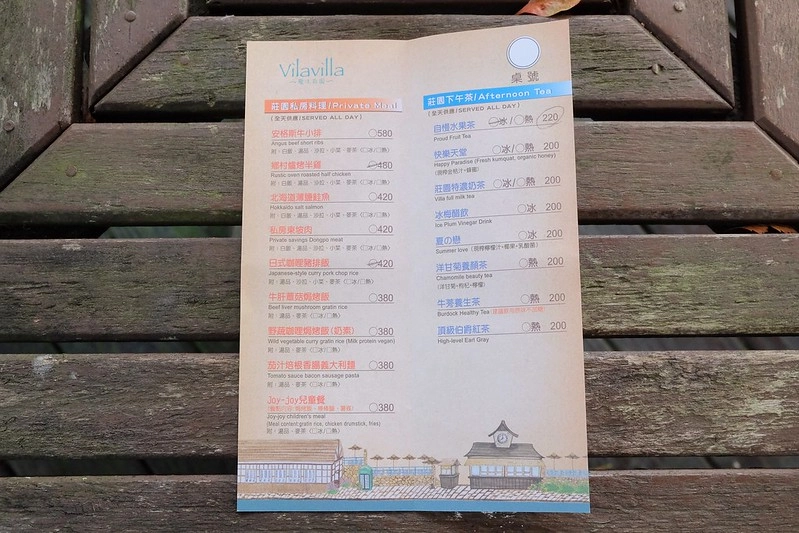 Vilavilla
桌號
莊園私房料理/Private Meal
(全天供應/SERVED ALL DAY)
安格斯牛小排 ○580
Angus beef short ribs
附：白飯、湯品、沙拉、小菜、麥茶(□冰/□熱)
鄉村爐烤半雞 ○480
Rustic oven roasted half chicken
附：白飯、湯品、沙拉、小菜、麥茶(□冰/□熱)
北海道薄鹽鮭魚 ○420
Hokkaido salt salmon
附：白飯、湯品、沙拉、小菜、麥茶(□冰/□熱)
私房東坡肉 ○420
Private savings Dongpo meat
附：白飯、湯品、沙拉、小菜、麥茶(□冰/□熱)
日式咖哩豬排飯 ○420
Japanese-style curry pork chop rice
附：湯品、沙拉、小菜、麥茶(□冰/□熱)
牛肝蕈菇焗烤飯 ○380
Beef liver mushroom gratin rice
附：湯品、麥茶(□冰/□熱)
野蔬咖哩焗烤飯(奶素) ○380
Wild vegetable curry gratin rice (Milk protein vegan)
附：湯品、麥茶(□冰/□熱)
茄汁培根香腸義大利麵 ○380
Tomato sauce bacon sausage pasta
附：湯品、麥茶(□冰/□熱)
Joy-joy兒童餐 ○380
Joy-joy children's meal
(Meat content gratin rice, chicken drumstick, fries)
附：湯品、麥茶(□冰/□熱)
莊園下午茶/Afternoon Tea
(全天供應/SERVED ALL DAY)
自慢水果茶 ○冰/○熱 220
Proud Fruit Tea
快樂天堂 ○冰/○熱 200
Happy Paradise (Fresh kumquat, organic honey)
(現榨金桔汁+蜂蜜)
莊園特濃奶茶 ○冰/○熱 200
Villa full milk tea
冰梅醋飲 ○冰 200
Ice Plum Vinegar Drink
夏の戀 ○冰 200
Summer love (現榨檸檬汁+椰果+乳酸菌)
洋甘菊養顏茶 ○熱 200
Chamomile beauty tea
(洋甘菊+枸杞+檸檬)
牛蒡養生茶 ○熱 200
Burdock Healthy Tea
頂級伯爵紅茶 ○熱 200
High-level Earl Gray